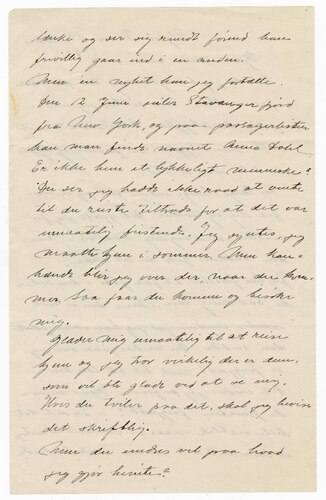 tænke og ser sig rundt forend han
frivillig gaar ind i en anden.
Men en nyhet kan jeg fortælle
Den 12 Juni seiler Stavangerfjord
fra New York, og paa passagerlisten
kan man finde navnet Anna
Er ikke hun et lykkeligt menneske?
Du ser jeg hadde ikke raad at vente
til du reiste. Tiltrods for at det var
umaadelig fristende. Jeg syntes, jeg
maatte hjem i sommer. Men kan-
hænde blir jeg over der, naar du kom-
mer, saa faar du komme og besøke
mig.
Glæder mig umaadelig til at reise
hjem og jeg tror virkelig der er dem,
som vil bli glade ved at se mig.
Hvis du tviler paa det, skal jeg bevise
det skriftlig.
Men du undres vel paa hvad
jeg gjør herute?